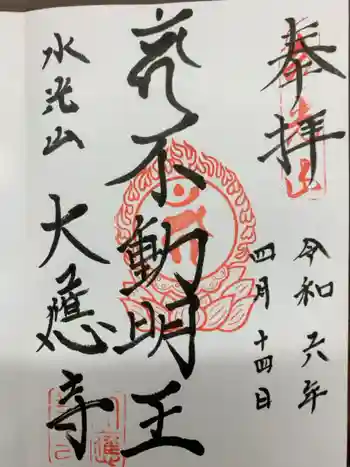 奉拝
令和六年
四月十四日
花不動明王
水光山
大應寺